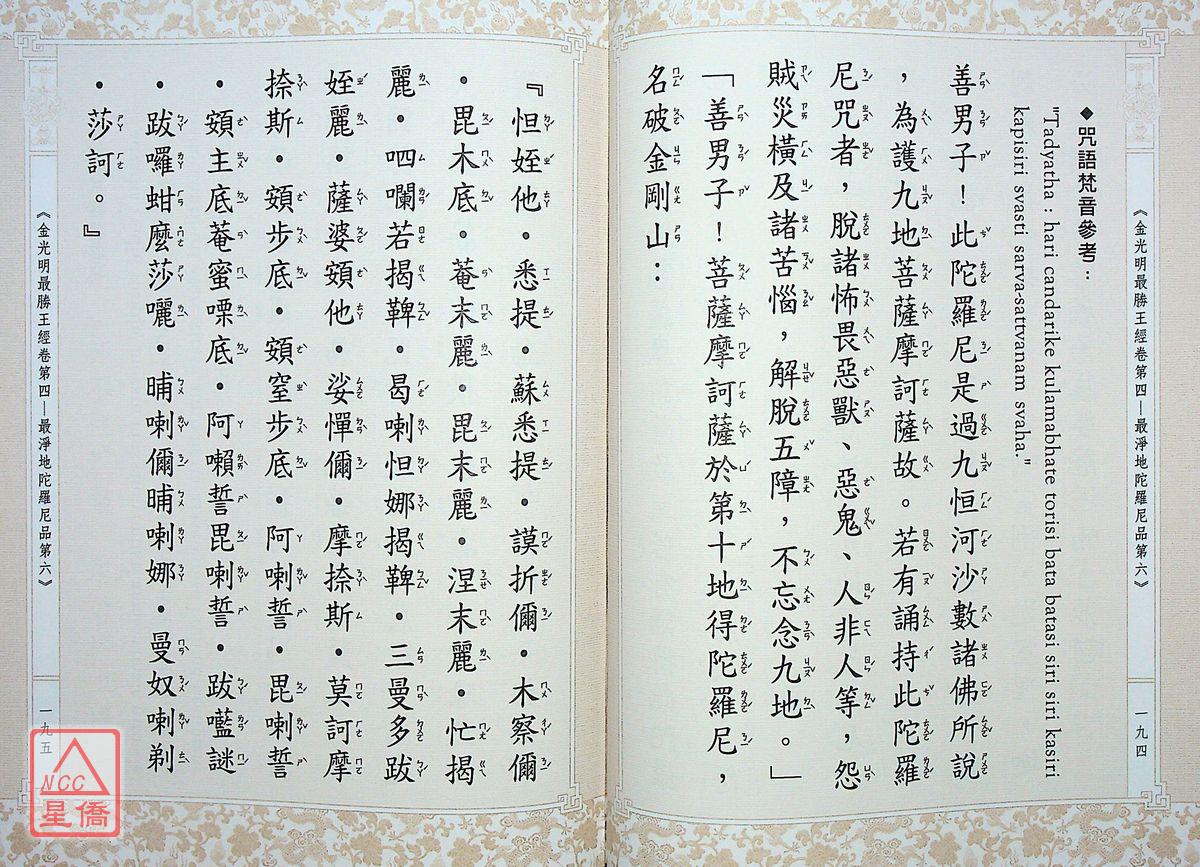 《金光明最勝王經卷第四—最淨地陀羅尼品第六》
一九四
◆咒語梵音參考：
"Tadyatha : hari candarike kulamabhate torisi bata batasi siri siri kasiri
kapisiri svasti sarva-sattvanam svaha."
善男子！此陀羅尼是過九恒河沙數諸佛所說
，為護九地菩薩摩訶薩故。若有誦持此陀羅
尼咒者，脫諸怖畏惡獸、惡鬼、人非人等，怨
賊災橫及諸苦惱，解脫五障，不忘念九地。」
「善男子！菩薩摩訶薩於第十地得陀羅尼，
名破金剛山：
『怛姪他．悉提．蘇悉提．謨折儞．木察儞
．毘木底．菴末麗．毘末麗．涅末麗．忙揭
麗．呬囒若揭鞞．曷喇怛娜揭鞞．三曼多跋
姪麗．薩婆頞他．娑憚儞．摩捺斯．莫訶摩
捺斯．頞步底．頞窒步底．阿喇誓．毘喇誓
．頞主底菴蜜㗚底．阿囇誓毘喇誓．跋嚂謎
．跋囉蚶麼莎囇．晡喇儞晡喇娜．曼奴喇剃
．莎訶。』
《金光明最勝王經卷第四—最淨地陀羅尼品第六》
一九五
NCC
星僑